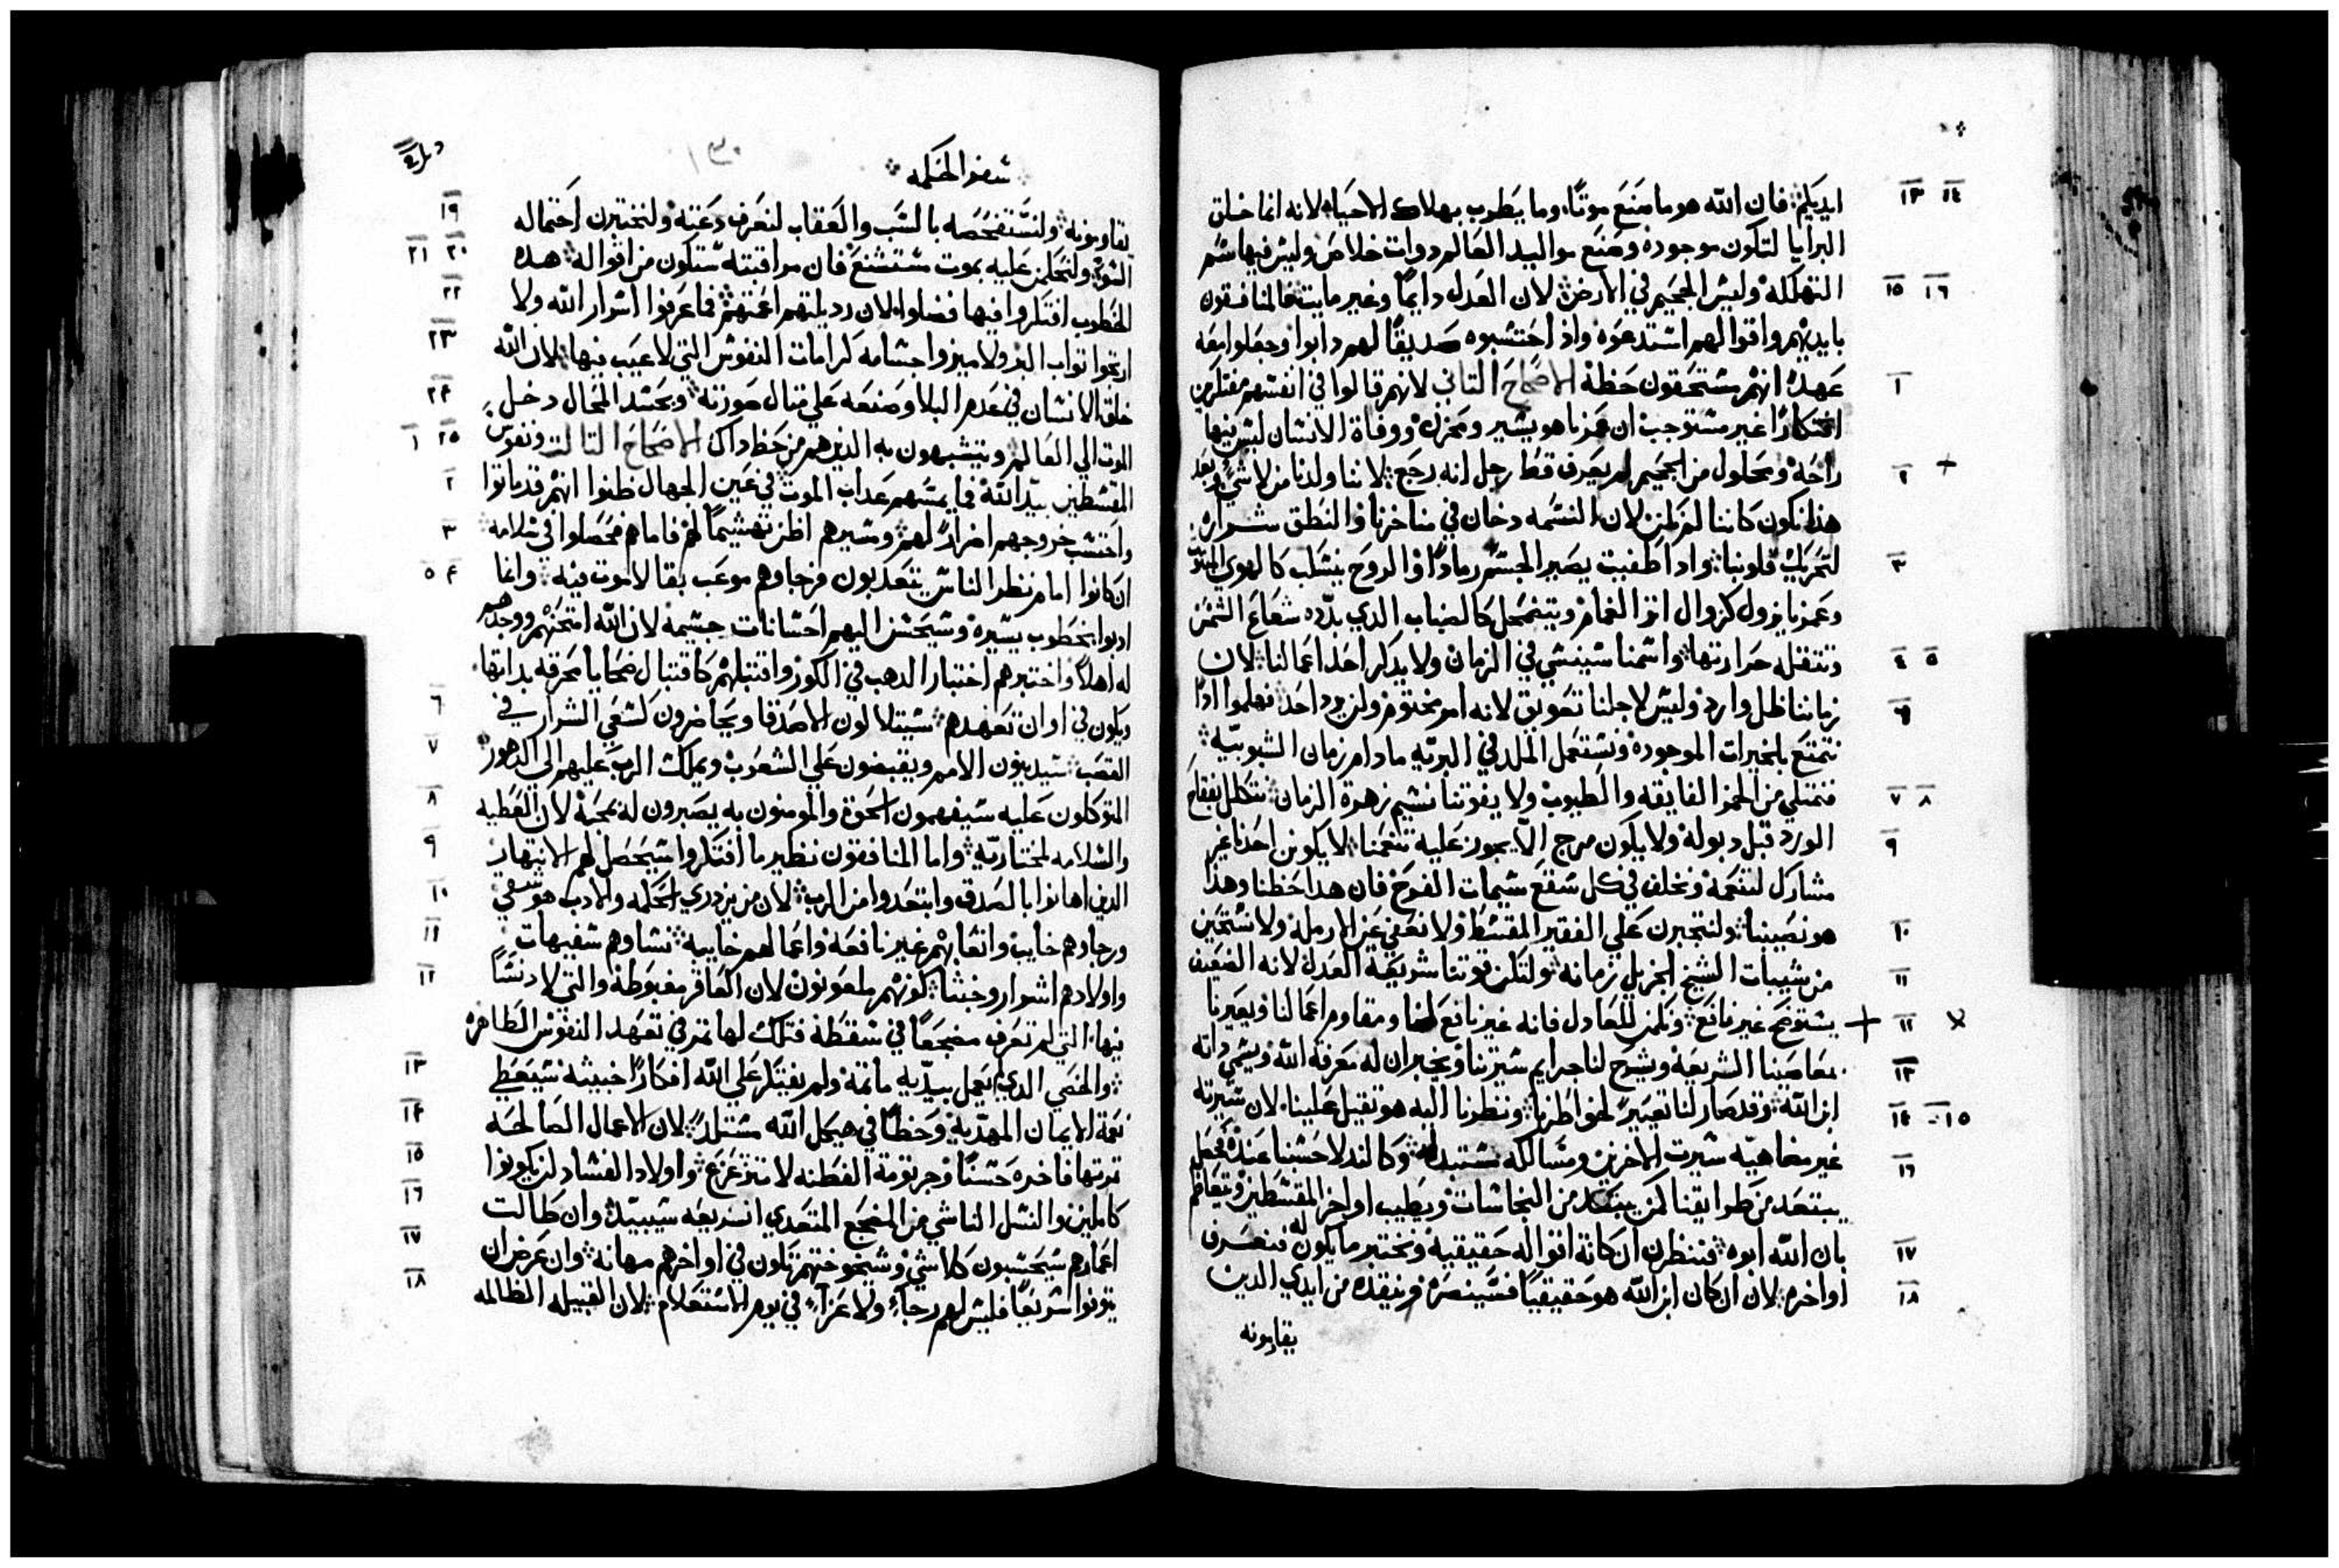 ١٤ ١٣ ايديكم فان الله هو ما صنع موتًا وما يطرب بهلاك الاحياء لانه انما خلق
البرايا لتكون موجوده وصنع مواليد العالم دوات خلاص وليس فيها سم
١٦ ١٥ التهلكه وليس الجحيم في الارض لان العدل دايمًا وغير مايت فالمنافقون
بايديهم واقوالهم استدعوه واذ احتسبوه صديقًا لهم دابوا وجعلوا معه
١ عهدًا انهم مستحقون حظه الاصحاح التاني لانهم قالوا في انفسهم مفتكرين
افتكارًا غير مستوجب ان عمرنا هو يسير ومحزن ووفاة الانسان ليس فيها
٢ راحة ومحلول من الجحيم لم يعرف قط رجل انه رجع لاننا ولدنا من لا شي وبعد
هذا نكون كاننا لم نكن لان النسمه دخان في مناخرنا والنطق شراره
٣ لتحريك قلوبنا وادا طفيت يصير الجسم رمادًا والروح ينسكب كالهوي
وعمرنا يزول كزوال اتر الغمام ويتضمحل كالضباب الدي بدده شعاع الشمس
٥ ٤ وتتقله حرارتها واسمنا سينسي في الزمان ولا يدكر احدًا اعمالنا لان
٦ زماننا ظل وارد وليس لاجلنا تعويق لانه امر مختوم ولن يرد احد فهلموا ادًا
نتمتع بالخيرات الموجوده ونستعمل الملد في البريه ما دام زمان الشبوبيه
٨ ٧ فنمتلي من الخمر الفايقه والطيوب ولا يفوتنا نسيم زهرة الزمان نتكلل بفقاح
٩ الورد قبل دبوله ولا يكون مرج الا يجوز عليه تنعمنا لا يكونن احدنا غير
مشارك لتنعمه ونخلف في كل سقع سيمات الفرح فان هدا حظنا وهدا
١٠ هو نصيبنا ولنتجبرن علي الفقير المقسط ولا نعفي عن الارمله ولا نستحين
١١ من شيبات الشيخ الجزيل زمانه ولتكن قوتنا شريعة العدل لانه الضعيف
١٢ يستوضح غير نافع ونكمن للعادل فانه غير نافع لنا ومقاوم اعمالنا ويعيرنا
١٣ بمعاصينا الشريعه ويشرح لنا جرايم سيرتنا ويخبر ان له معرفة الله ويسمي داته
١٥ ١٤ ابن الله وقد صار لنا تعييرًا لخواطرنا ونظرنا اليه هو تقيل علينا لان سيرته
١٦ غير مضاهيه سيرت الاخرين ومسالكه مستبدله وكالندل حسبنا عنده فجعل
يبتعد من طرايقنا كمن يبتعد من النجاسات ويطيب اواخر المقسطين ويتعاظم
١٧ بان الله ابوه فننظرن ان كانة اقواله حقيقية ونختبر ما يكون له فنعرف
١٨ اواخره لان ان كان ابن الله هو حقيقيًا فسينصره وينقده من ايدي الدين
يقاومونه
سفر الحكمه
١٣٠
١٩ يقاومونه ولنستفحصه بالسب والعقاب لنعرف دعته ولنختبرن احتماله
٢٠ ٢١ السو ولنحكمن عليه بموت مستشنع فان مراقبته ستكون من اقواله هده
٢٢ الخطوب افتكروا فيها فضلوا لان رديلتهم اعمتهم فما عرفوا اسرار الله ولا
٢٣ ارتجوا تواب البر ولا ميزوا جسامه كرامات النفوس التي لا عيب فيها لان الله
٢٤ خلق الانسان في عدم البلا وصنعه علي متال صورته وبحسد المحال دخل
٢٥ ١ الموت الي العالم ويتشبهون به الدين هم من حظ داك الاصحاح التالت ونفوس
٢ المقسطين بيد الله فما يمسهم عداب الموت في عين الجهال ظنوا انهم قد ماتوا
٣ واحتسب خروجهم اضرارًا لهم ومسيرهم اظن تهشيمًا لهم فاما هم فحصلوا في سلامه
٤ ٥ ان كانوا امام نظر الناس يتعدبون فرجاوهم موعب بقا لا موت فيه وانما
ادبوا بخطوب يسيره وسيحسن اليهم احسانات جسيمه لان الله امتحنهم ووجدهم
له اهلًا واختبرهم اختبار الدهب في الكور واقتبلهم كاقتبال ضحايا محرقه بداتها
٦ ويكون في اوان تعهدهم ستيتلالون الاصدقا ويحاضرون كسعي الشرار في
٧ القصب سيدينون الامم ويقبضون علي الشعوب ويملك الرب عليهم الي الدهور
٨ المتوكلون عليه سيفهمون الحق والمومنون به يصبرون له بمحبة لان العطيه
٩ والسلامه لمختاريه واما المنافقون نظير ما افتكروا سيحصل لهم الانتهار
١٠ الدين اهانوا بالصدق وابتعدوا من الرب لان من يزدري الحكمه والادب هو شقي
١١ ورجاوهم خايب واتعابهم غير نافعه واعمالهم خاييه نساوهم سفيهات
١٢ واولادهم اشرار وخبثا كونهم ملعونون لان العاقر مغبوطه والتي لا دنسًا
فيها التي لم تعرف مضجعًا في سقطة فتلك لها تمر في تعهد النفوس الطاهره
١٣ والخصي الدي لم يعمل بيديه ماتمة ولم يفتكر علي الله افكارًا خبيته سيعطي
١٤ نعمة الايمان المهديه وحظًا في هيكل الله مستلدًا لان الاعمال الصالحه
١٥ تمرتها فاخره حسنًا وجرتومة الفطنه لا تتزعزع واولاد الفساد لن يكونوا
١٦ كاملين والنسل الناشي من المضجع المتعدي الشريعه سيبيد وان طالت
١٧ اعمارهم سيحسبون كلا شي وشيخوختهم تكون في اواخرهم مهانه وان عرض ان
١٨ يتوتوا سريعًا فليس لهم رجاء ولا عزاء في يوم الاستعلام لان القبيله الظالمه